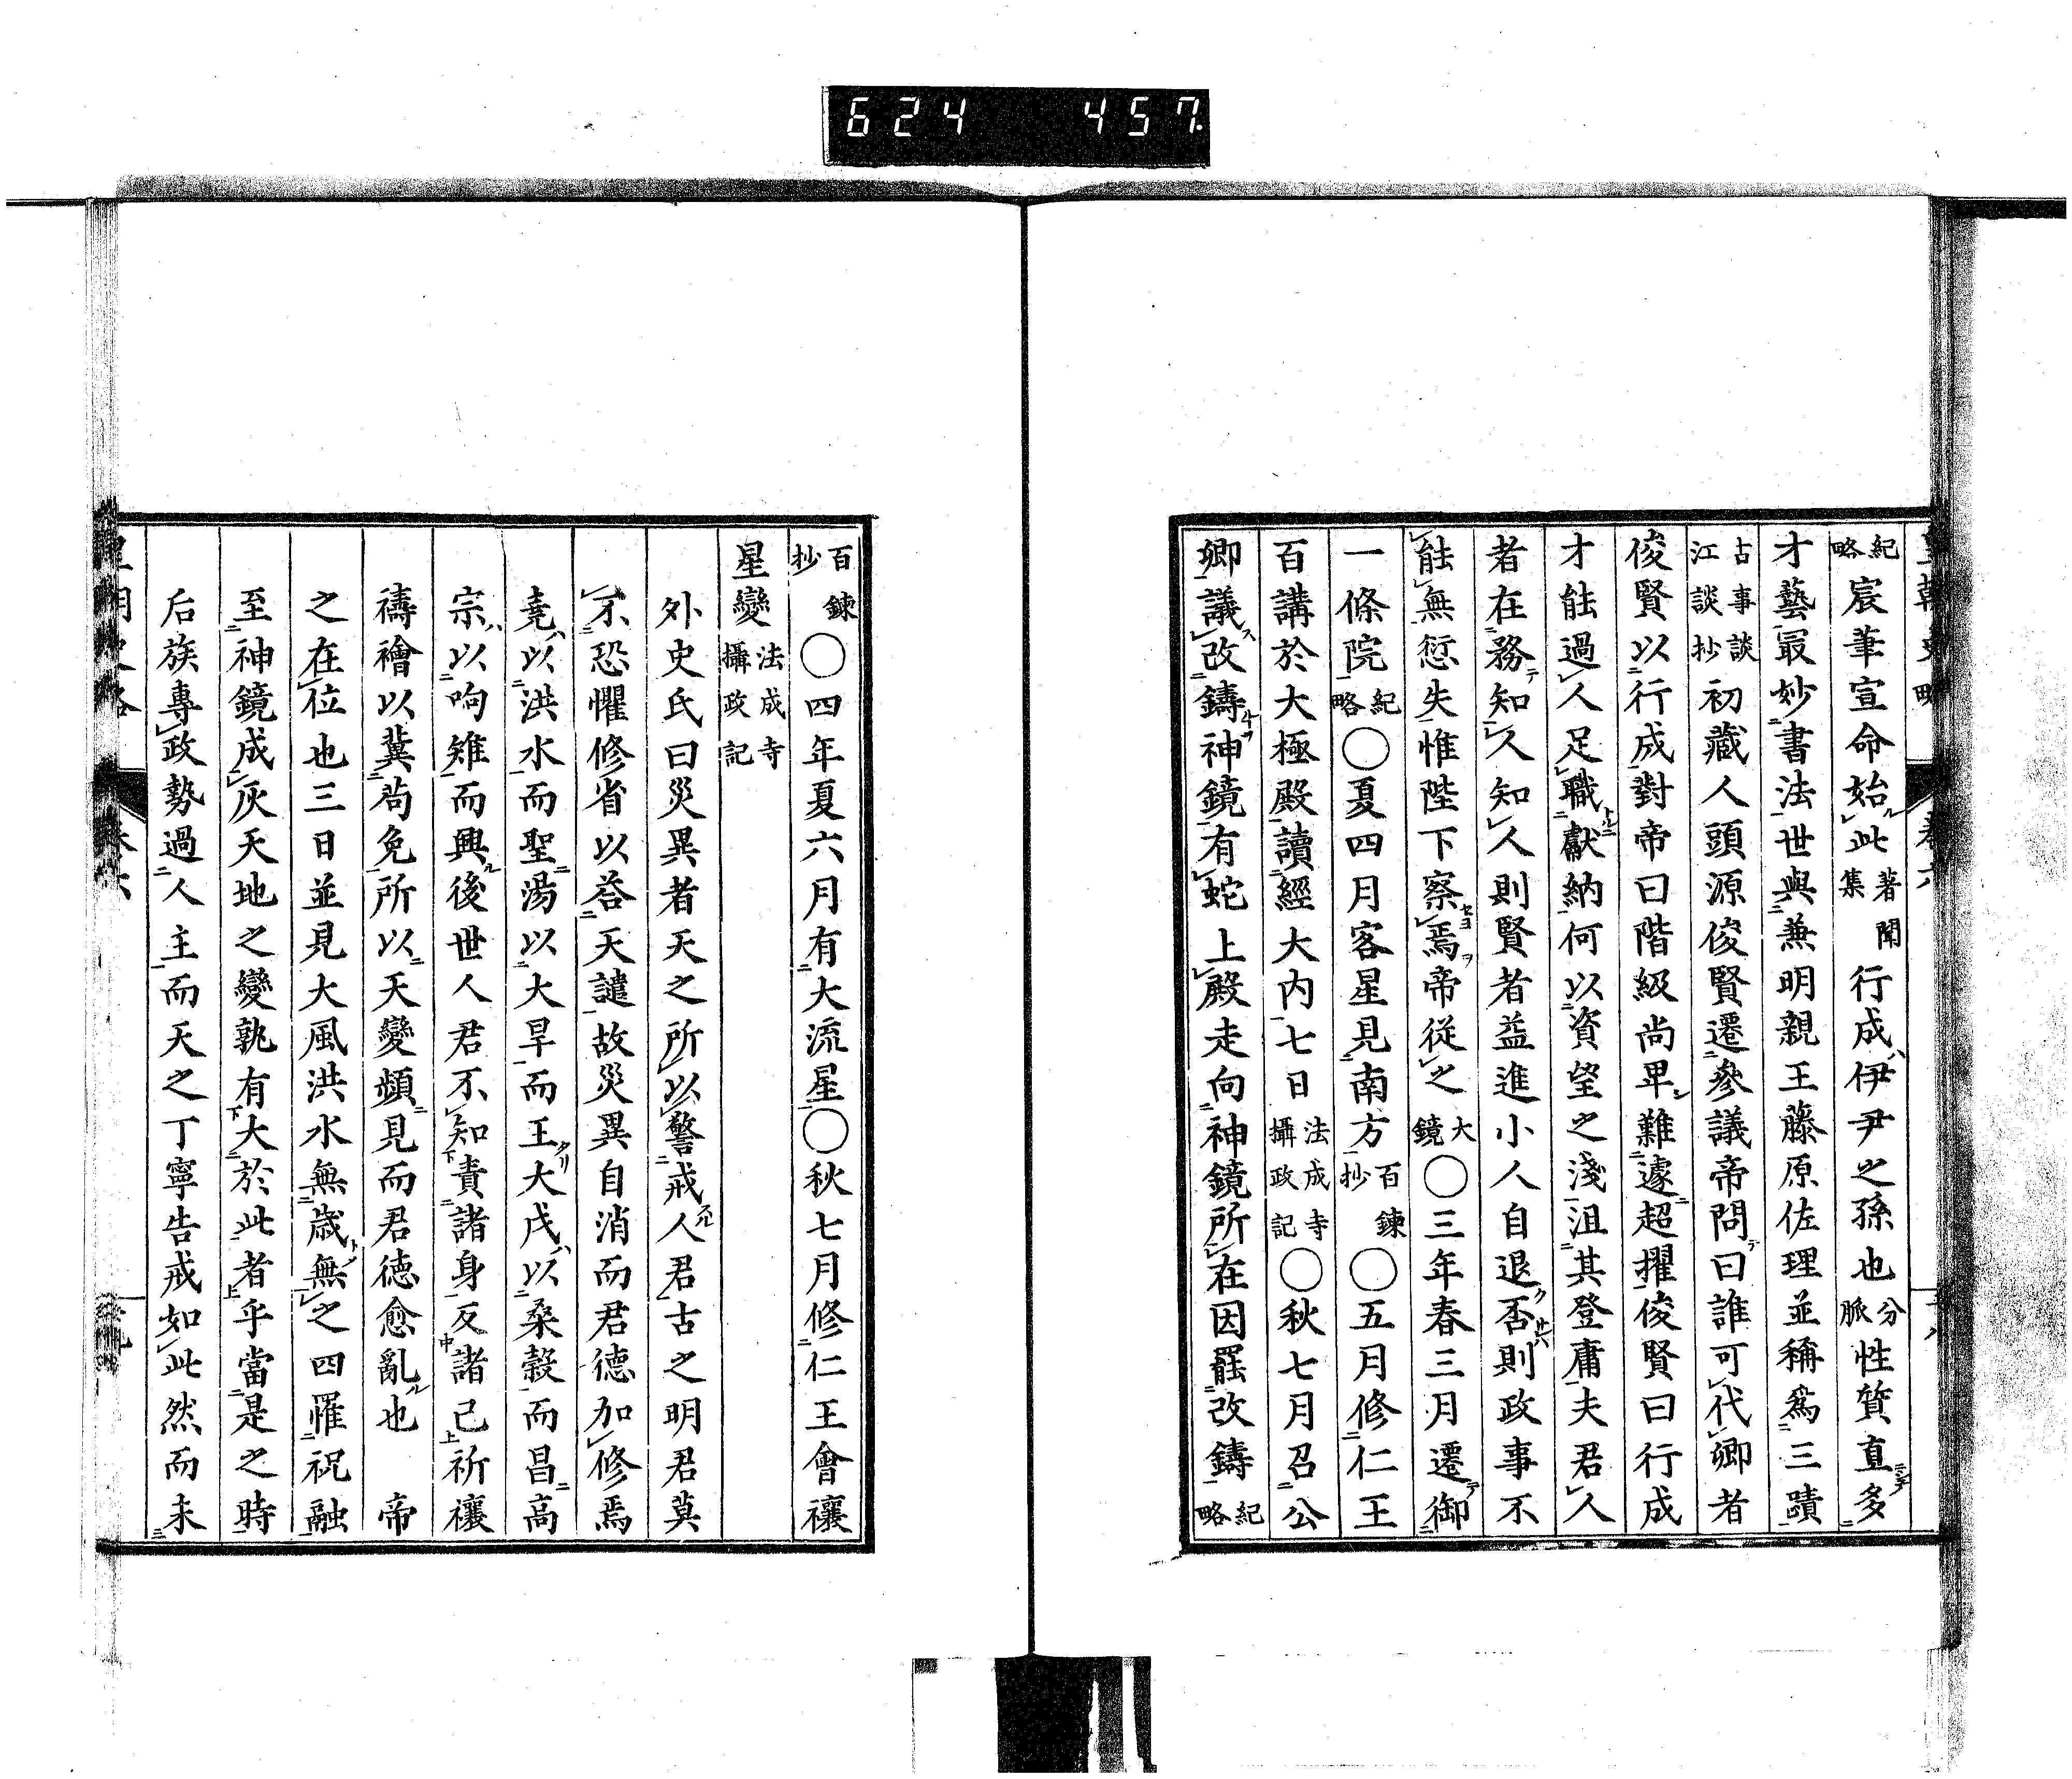 624 457
皇朝史略 卷六
紀略宸筆宣命始此著聞集行成伊尹之孫也分脈性質直多
才藝最妙書法世與兼明親王藤原佐理並稱爲三蹟
古事談江談抄初藏人頭源俊賢遷參議帝問曰誰可代卿者
俊賢以行成對帝曰階級尚卑難遽超擢俊賢曰行成
才能過人足職獻納何以資望之淺沮其登庸夫君人
者在務知人知人則賢者益進小人自退否則政事不
能無愆失惟陛下察焉帝從之大鏡〇三年春三月遷御
一條院紀略〇夏四月客星見南方百鍊抄〇五月修仁王
百講於大極殿讀經大内七日法成寺攝政記〇秋七月召公
卿議改鑄神鏡有蛇上殿走向神鏡所在因罷改鑄紀略
百鍊抄〇四年夏六月有大流星〇秋七月修仁王會禳
星變法成寺攝政記
外史氏曰災異者天之所以警戒人君古之明君莫
不恐懼修省以荅天譴故災異自消而君德加修焉
堯以洪水而聖湯以大旱而王大戊以桑穀而昌高
宗以呴雉而興後世人君不知責諸身反諸己祈禳
禱禬以冀苟免所以天變頻見而君德愈亂也 帝
之在位也三日並見大風洪水無歳無之四罹祝融
至神鏡成灰天地之變孰有大於此者乎當是之時
后族專政勢過人主而天之丁寧告戒如此然而未